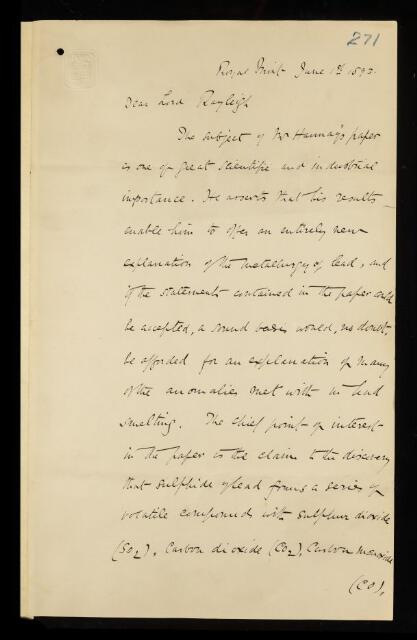 271
Royal Mint June 1st 189
Dear Lord Rayleigh
The subject of Mr Hannay's paper
is one of great scientific and industrial
importance. He asserts that his results
enable him to offer an entirely new
explanation of the metallurgy of lead, and
if the statements contained in the paper could
be accepted, a sound basis would, no doubt,
be afforded for an explanation of many
of the anomalies met with in lead
smelting. The chief point of interest
in the paper is the claim to the discovery
that sulphide of lead forms a series of
volatile compounds with sulphur dioxide
(SO2), Carbon dioxide (CO2), Carbon monoxide
(CO),